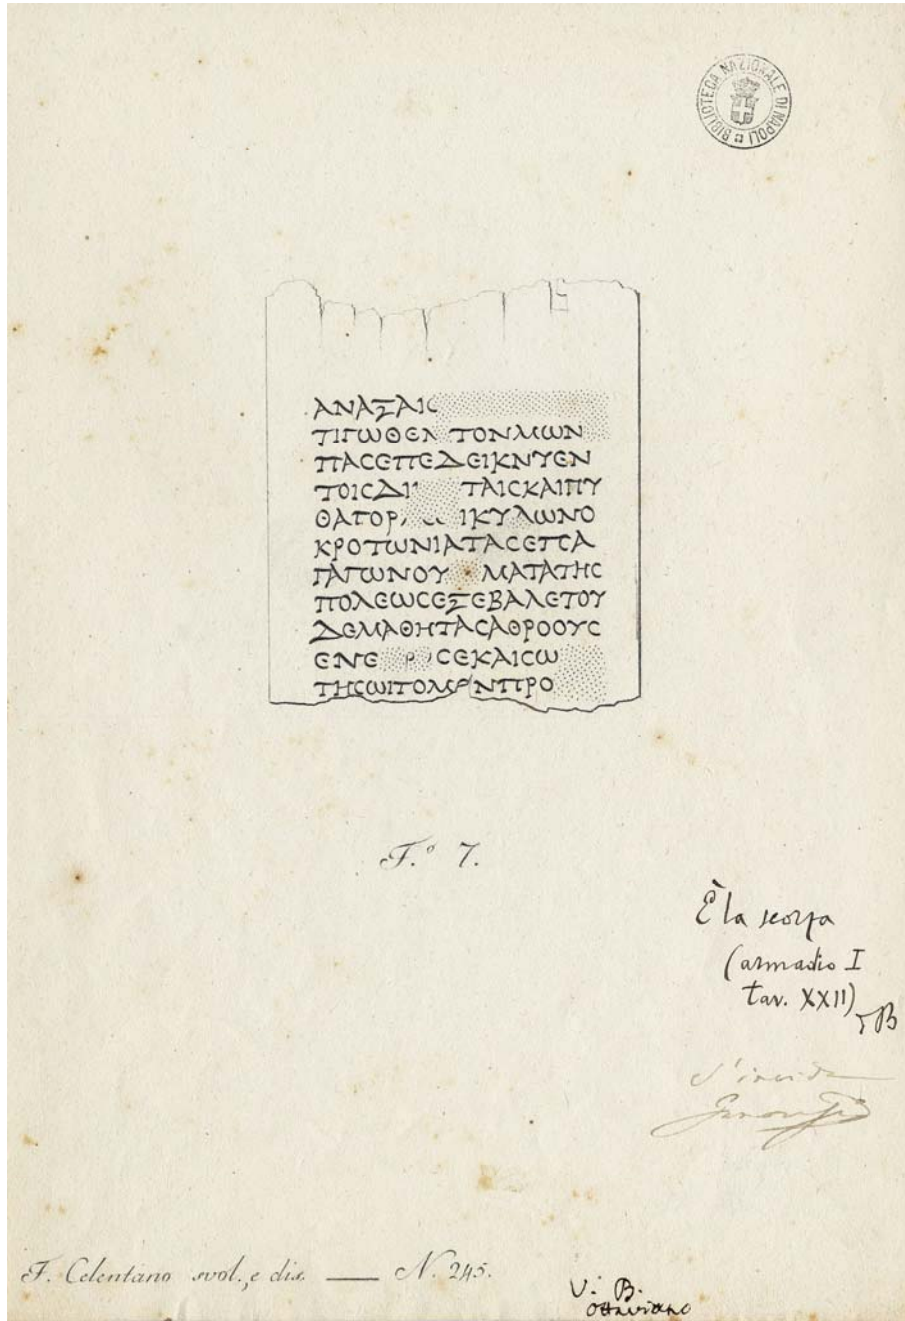 BIBLIOTECA NAZIONALE DI NAPOLI
ΑΝΑΞΑΓ
ΤΙΓΩΘΕΝ ΤΟΝΜΩΝ
ΠΑСΕΠΕΔΕΙΚΝΥΕΝ
ΤΟΙСΔΙ ΤΑΙСΚΑΙΠΥ
ΘΑΓΟΡ ΙΚΥΛΩΝΟ
ΚΡΟΤΩΝΙΑΤΑСΕΠΕΑ
ΓΑΓΩΝΟΥ ΜΑΤΑΤΗС
ΠΟΛΕΩСΕΞΕΒΑΛΕΤΟΥ
ΔΕΜΑΘΗΤΑСΑΘΡΟΟΥС
ΕΝΕ Ρ СΕΚΑΙСΩ
ΤΗСΩΙΤΟΜ ΝΠΡΟ
F.º 7.
È la scorza
(armadio I
tav. XXII)
B
F. Celentano svol. e dis. — N. 245.
V. B.
Ottaviano